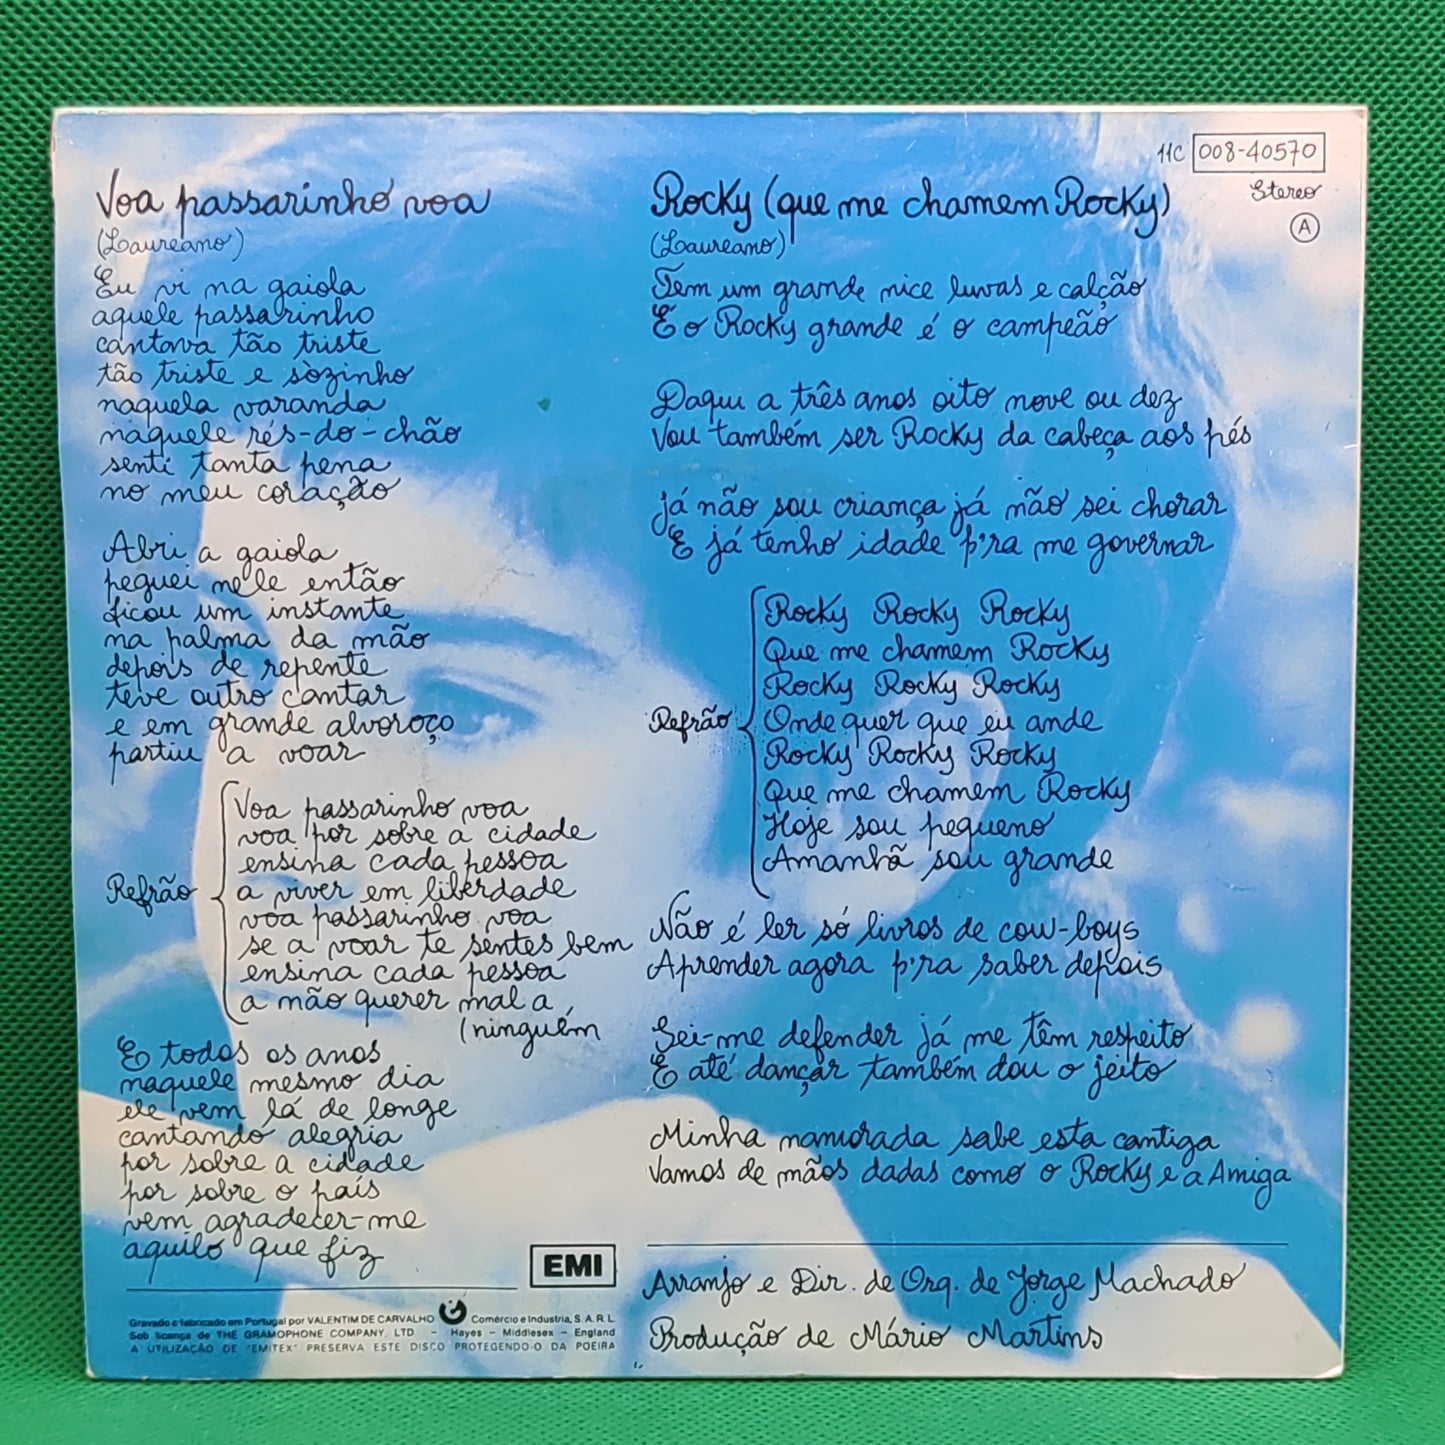 Voa passarinho voa
(Laureano)
Eu vi na gaiola
aquele passarinho
cantava tão triste
tão triste e sòzinho
naquela varanda
naquele rés-do-chão
senti tanta pena
no meu coração
Abri a gaiola
peguei nele então
ficou um instante
na palma da mão
depois de repente
teve outro cantar
e em grande alvoroço
partiu a voar
Refrão
Voa passarinho voa
voa por sobre a cidade
ensina cada pessoa
a viver em liberdade
voa passarinho voa
se a voar te sentes bem
ensina cada pessoa
a não querer mal a
(ninguém
E todos os anos
naquele mesmo dia
ele vem lá de longe
cantando alegria
por sobre a cidade
por sobre o país
vem agradecer-me
aquilo que fiz
EMI
Gravado e fabricado em Portugal por VALENTIM DE CARVALHO Comércio e Industria, S.A.R.L.
Sob licença de THE GRAMOPHONE COMPANY, LTD - Hayes - Middlesex - England
A UTILIZAÇÃO DE "EMITEX" PRESERVA ESTE DISCO PROTEGENDO-O DA POEIRA
11C 008-40570
Stereo
A
Rocky (que me chamem Rocky)
(Laureano)
Tem um grande nice luvas e calção
E o Rocky grande é o campeão
Daqui a três anos oito nove ou dez
Vou também ser Rocky da cabeça aos pés
já não sou criança já não sei chorar
E já tenho idade p'ra me governar
Refrão
Rocky Rocky Rocky
Que me chamem Rocky
Rocky Rocky Rocky
Onde quer que eu ande
Rocky Rocky Rocky
Que me chamem Rocky
Hoje sou pequeno
Amanhã sou grande
Não é ler só livros de cow-boys
Aprender agora p'ra saber depois
Sei-me defender já me têm respeito
E até dançar também dou o jeito
Minha namorada sabe esta cantiga
Vamos de mãos dadas como o Rocky e a Amiga
Arranjo e Dir. de Orq. de Jorge Machado
Produção de Mário Martins